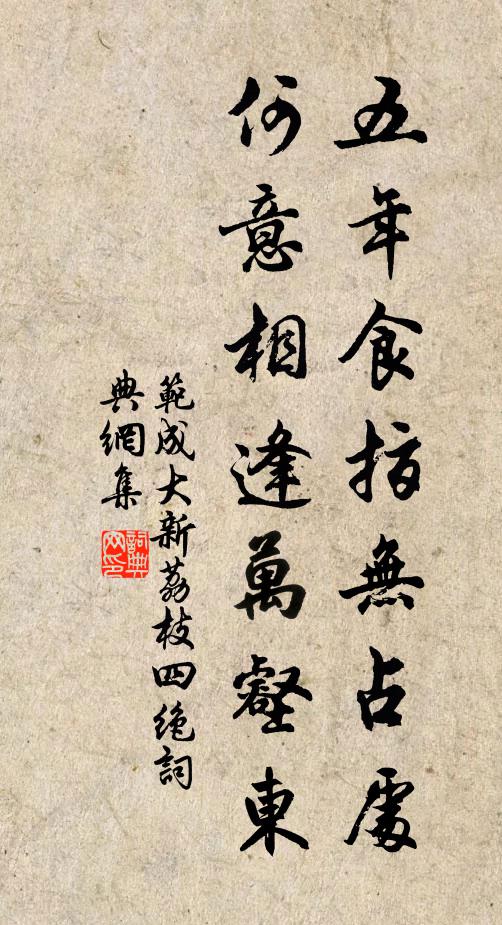 五年食指無占處
何意相逢萬壑東
範成大新荔枝四絶詞
典網集
詞典網印